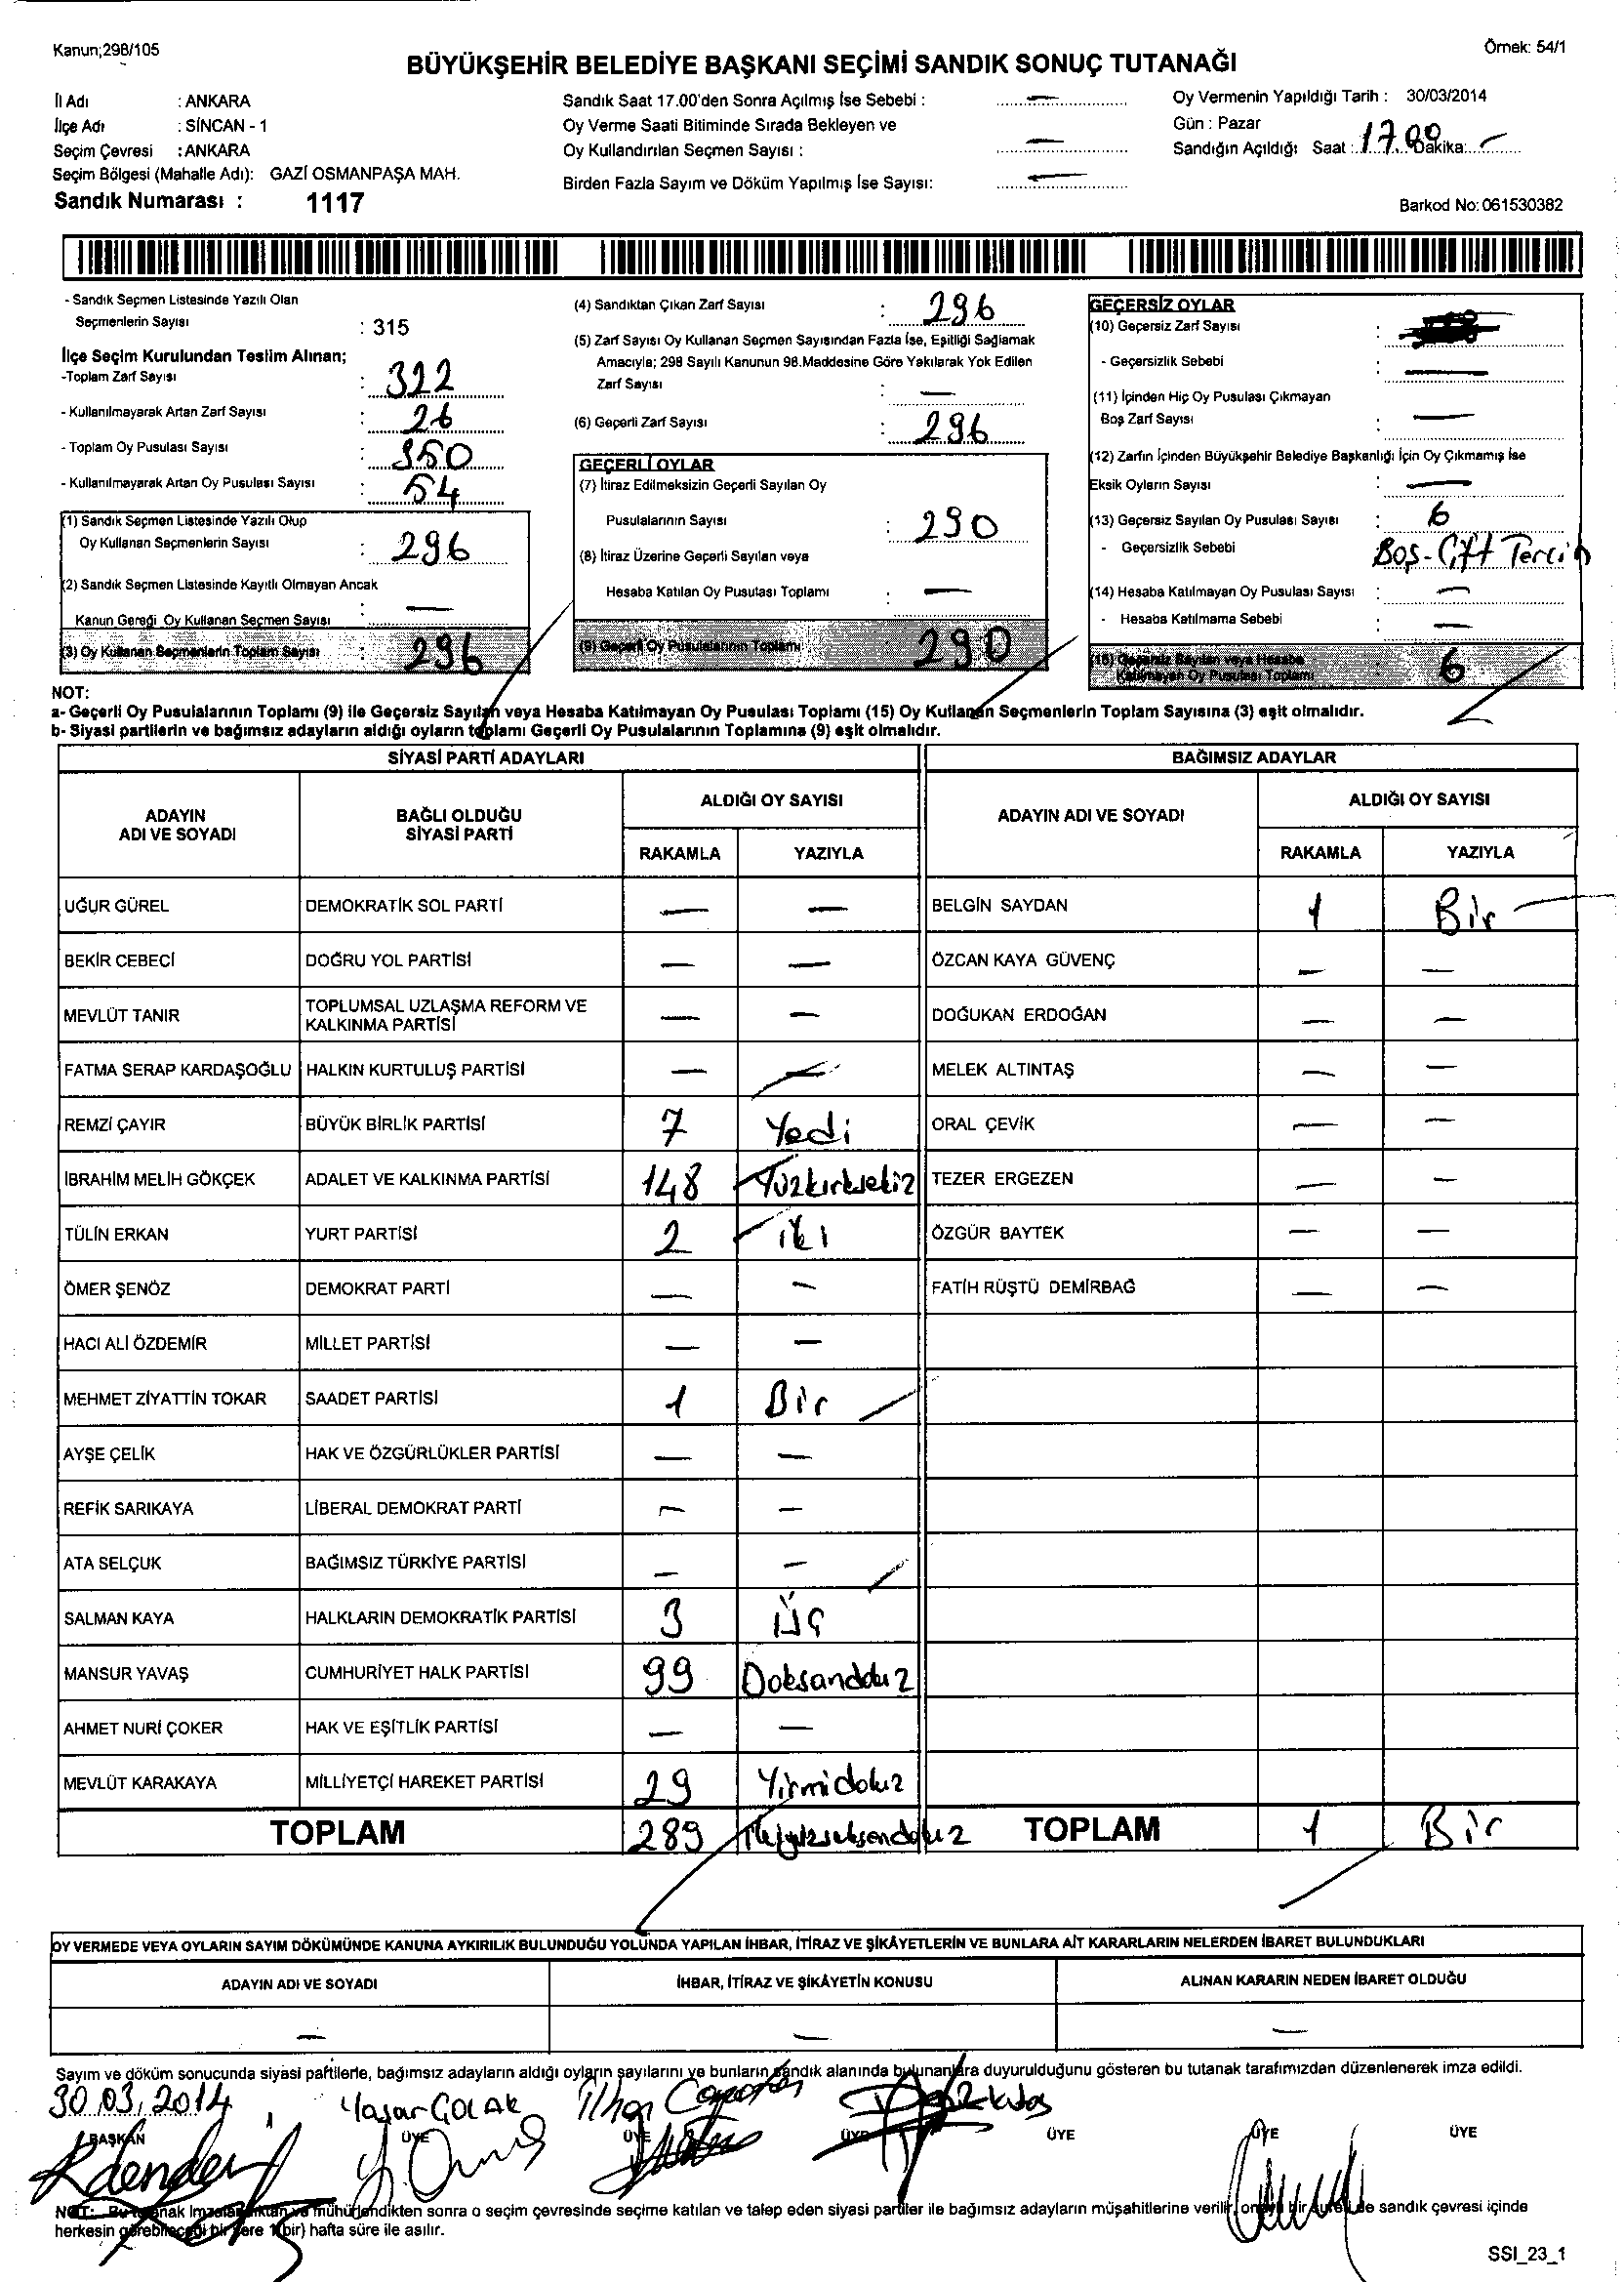 Kanun;298/105
Örnek: 54/1
BÜYÜKŞEHİR BELEDİYE BAŞKANI SEÇİMİ SANDIK SONUÇ TUTANAĞI
İl Adı : ANKARA
İlçe Adı : SİNCAN - 1
Seçim Çevresi : ANKARA
Seçim Bölgesi (Mahalle Adı): GAZİ OSMANPAŞA MAH.
Sandık Numarası : 1117
Sandık Saat 17.00'den Sonra Açılmış İse Sebebi : —
Oy Verme Saati Bitiminde Sırada Bekleyen ve
Oy Kullandırılan Seçmen Sayısı : —
Birden Fazla Sayım ve Döküm Yapılmış İse Sayısı: —
Oy Vermenin Yapıldığı Tarih : 30/03/2014
Gün : Pazar
Sandığın Açıldığı Saat : 17.00 Dakika: —
Barkod No: 061530382
- Sandık Seçmen Listesinde Yazılı Olan
Seçmenlerin Sayısı : 315
İlçe Seçim Kurulundan Teslim Alınan;
-Toplam Zarf Sayısı : 322
- Kullanılmayarak Artan Zarf Sayısı : 26
- Toplam Oy Pusulası Sayısı : 350
- Kullanılmayarak Artan Oy Pusulası Sayısı : 54
(1) Sandık Seçmen Listesinde Yazılı Olup
Oy Kullanan Seçmenlerin Sayısı : 296
(2) Sandık Seçmen Listesinde Kayıtlı Olmayan Ancak
Kanun Gereği Oy Kullanan Seçmen Sayısı : —
(3) Oy Kullanan Seçmenlerin Toplam Sayısı : 296
(4) Sandıktan Çıkan Zarf Sayısı : 296
(5) Zarf Sayısı Oy Kullanan Seçmen Sayısından Fazla İse, Eşitliği Sağlamak
Amacıyla; 298 Sayılı Kanunun 98.Maddesine Göre Yakılarak Yok Edilen
Zarf Sayısı : —
(6) Geçerli Zarf Sayısı : 296
GEÇERLİ OYLAR
(7) İtiraz Edilmeksizin Geçerli Sayılan Oy
Pusulalarının Sayısı : 290
(8) İtiraz Üzerine Geçerli Sayılan veya
Hesaba Katılan Oy Pusulası Toplamı : —
(9) Geçerli Oy Pusulalarının Toplamı 290
GEÇERSİZ OYLAR
(10) Geçersiz Zarf Sayısı :
- Geçersizlik Sebebi : —
(11) İçinden Hiç Oy Pusulası Çıkmayan
Boş Zarf Sayısı : —
(12) Zarfın İçinden Büyükşehir Belediye Başkanlığı İçin Oy Çıkmamış İse
Eksik Oyların Sayısı : —
(13) Geçersiz Sayılan Oy Pusulası Sayısı : 6
- Geçersizlik Sebebi Boş-Çift Tercih
(14) Hesaba Katılmayan Oy Pusulası Sayısı : —
- Hesaba Katılmama Sebebi : —
(15) Geçersiz Sayılan veya Hesaba
Katılmayan Oy Pusulası Toplamı : 6
NOT:
a- Geçerli Oy Pusulalarının Toplamı (9) ile Geçersiz Sayılan veya Hesaba Katılmayan Oy Pusulası Toplamı (15) Oy Kullanan Seçmenlerin Toplam Sayısına (3) eşit olmalıdır.
b- Siyasi partilerin ve bağımsız adayların aldığı oyların toplamı Geçerli Oy Pusulalarının Toplamına (9) eşit olmalıdır.
SİYASİ PARTİ ADAYLARI BAĞIMSIZ ADAYLAR
ADAYIN ADI VE SOYADI BAĞLI OLDUĞU SİYASİ PARTİ ALDIĞI OY SAYISI ADAYIN ADI VE SOYADI ALDIĞI OY SAYISI
RAKAMLA YAZIYLA RAKAMLA YAZIYLA
UĞUR GÜREL DEMOKRATİK SOL PARTİ — — BELGİN SAYDAN 1 Bir
BEKİR CEBECİ DOĞRU YOL PARTİSİ — — ÖZCAN KAYA GÜVENÇ — —
MEVLÜT TANIR TOPLUMSAL UZLAŞMA REFORM VE KALKINMA PARTİSİ — — DOĞUKAN ERDOĞAN — —
FATMA SERAP KARDAŞOĞLU HALKIN KURTULUŞ PARTİSİ — — MELEK ALTINTAŞ — —
REMZİ ÇAYIR BÜYÜK BİRLİK PARTİSİ 7 Yedi ORAL ÇEVİK — —
İBRAHİM MELİH GÖKÇEK ADALET VE KALKINMA PARTİSİ 148 Yüzkırksekiz TEZER ERGEZEN — —
TÜLİN ERKAN YURT PARTİSİ 2 iki ÖZGÜR BAYTEK — —
ÖMER ŞENÖZ DEMOKRAT PARTİ — — FATİH RÜŞTÜ DEMİRBAĞ — —
HACI ALİ ÖZDEMİR MİLLET PARTİSİ — —
MEHMET ZİYATTİN TOKAR SAADET PARTİSİ 1 Bir
AYŞE ÇELİK HAK VE ÖZGÜRLÜKLER PARTİSİ — —
REFİK SARIKAYA LİBERAL DEMOKRAT PARTİ — —
ATA SELÇUK BAĞIMSIZ TÜRKİYE PARTİSİ — —
SALMAN KAYA HALKLARIN DEMOKRATİK PARTİSİ 3 Üç
MANSUR YAVAŞ CUMHURİYET HALK PARTİSİ 99 Doksandduz
AHMET NURİ ÇOKER HAK VE EŞİTLİK PARTİSİ — —
MEVLÜT KARAKAYA MİLLİYETÇİ HAREKET PARTİSİ 29 Yirmidokuz
TOPLAM 289 İkiyüzseksendokuz TOPLAM 1 Bir
OY VERMEDE VEYA OYLARIN SAYIM DÖKÜMÜNDE KANUNA AYKIRILIK BULUNDUĞU YOLUNDA YAPILAN İHBAR, İTİRAZ VE ŞİKÂYETLERİN VE BUNLARA AİT KARARLARIN NELERDEN İBARET BULUNDUKLARI
ADAYIN ADI VE SOYADI İHBAR, İTİRAZ VE ŞİKÂYETİN KONUSU ALINAN KARARIN NEDEN İBARET OLDUĞU
— — —
Sayım ve döküm sonucunda siyasi partilerle, bağımsız adayların aldığı oyların sayılarını ve bunların sandık alanında bulunanlara duyurulduğunu gösteren bu tutanak tarafımızdan düzenlenerek imza edildi.
30.03.2014 Yaşar ÇOLAK İlhan
BAŞKAN ÜYE ÜYE ÜYE ÜYE ÜYE ÜYE
NOT: Bu tutanak imzalandıktan ve mühürlendikten sonra o seçim çevresinde seçime katılan ve talep eden siyasi partiler ile bağımsız adayların müşahitlerine verilir, onaylı bir sureti de sandık çevresi içinde
herkesin görebileceği bir yere 1(bir) hafta süre ile asılır.
SSI_23_1